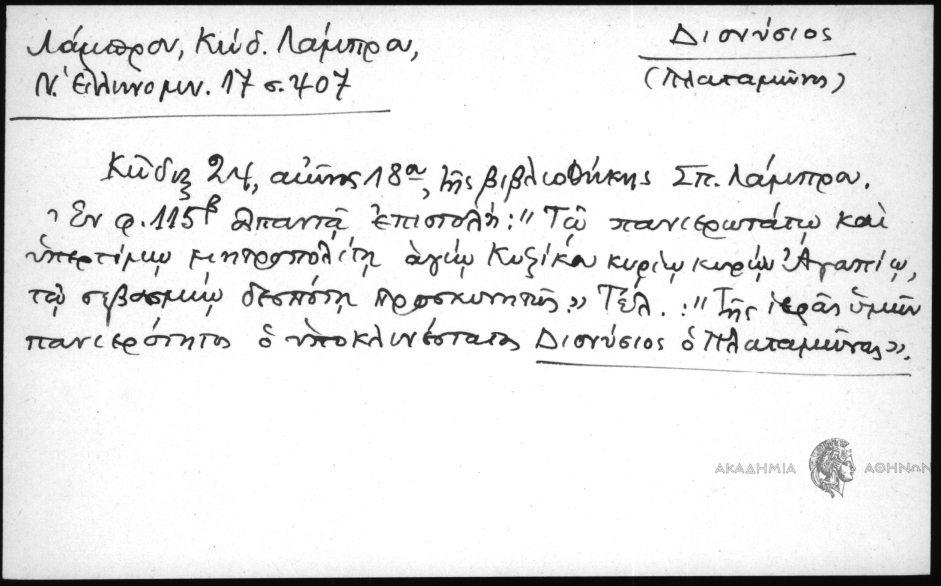 Λάμπρου, Κώδ. Λάμπρου,
Ν. Ἑλληνομν. 17 σ. 407
Διονύσιος
(Πλαταμῶνος)
Κῶδιξ 24, αἰῶνος 18ου, τῆς βιβλιοθήκης Σπ. Λάμπρου.
Ἐν φ. 115β ἀπαντᾷ ἐπιστολή: "Τῷ πανιερωτάτῳ καὶ
ὑπερτίμῳ μητροπολίτῃ ἁγίῳ Κυζίκου κυρίῳ κυρίῳ Ἀγαπίῳ,
τῷ σεβασμίῳ δεσπότῃ προσκυνητῶς». Τέλ.: "Τῆς ἱερᾶς ὑμῶν
πανιερότητος ὁ ὑποκλινέστατος Διονύσιος ὁ Πλαταμῶνος».
ΑΚΑΔΗΜΙΑ ΑΘΗΝΩΝ